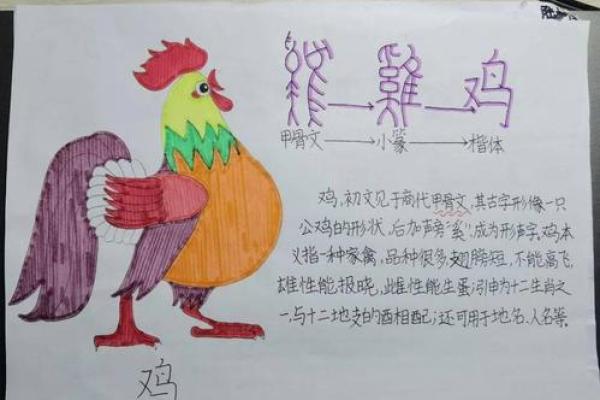 雞 鸡
甲骨文 小篆 楷体
鸡,初文见于商代甲骨文,其古字形像一只
公鸡的形状,后加声旁“奚”,成为形声字。鸡本
义指一种家禽,品种很多,翅膀短,不能高飞,
雄性能报晓,雌性能生蛋;引申为十二生肖之
一,与十二地支的酉相配;还可用于地名、人名等。
鸡